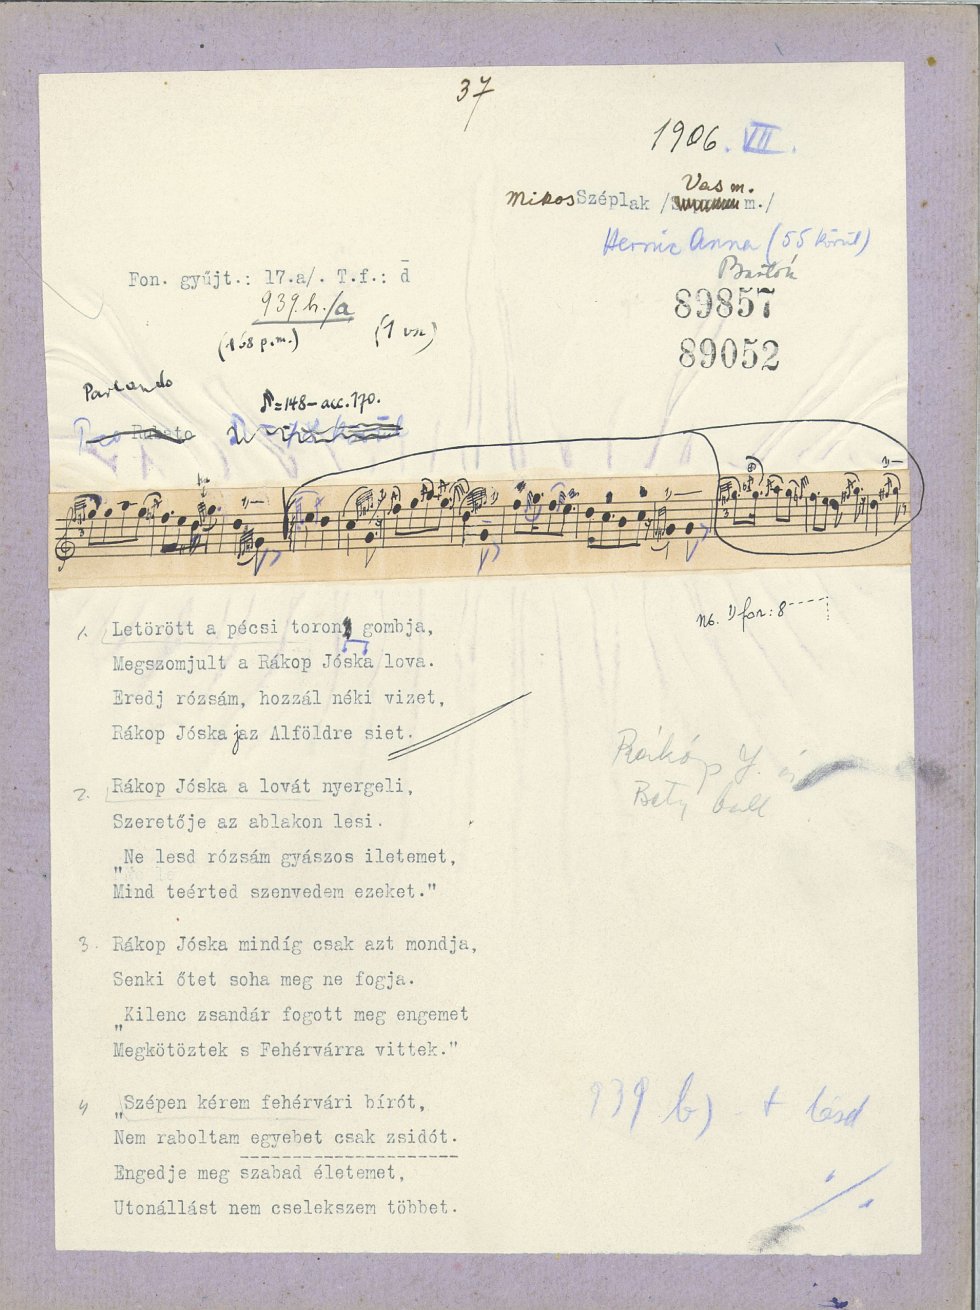 37
1906. VII.
Vas m.
Mikos Széplak / m./
Hernic Anna (55 körül)
Bartók
Fon. gyűjt.: 17.a/. T.f.: d̄
89857
939.b./a
(1 vsz.)
89052
Parlando
=148-acc.170.
Rubato
No. 1) for: 8
1. Letörött a pécsi torony gombja,
Megszomjult a Rákop Jóska lova.
Eredj rózsám, hozzál néki vizet,
Rákop Jóska jaz Alföldre siet.
Rákóp J. és
Bety ball
2. Rákop Jóska a lovát nyergeli,
Szeretője az ablakon lesi.
„Ne lesd rózsám gyászos iletemet,
Mind teérted szenvedem ezeket."
3. Rákop Jóska mindíg csak azt mondja,
Senki őtet soha meg ne fogja.
„Kilenc zsandár fogott meg engemet
Megkötöztek s Fehérvárra vittek."
4 „Szépen kérem fehérvári bírót,
Nem raboltam egyebet csak zsidót.
Engedje meg szabad életemet,
Utonállást nem cselekszem többet.
939 b) - + lásd